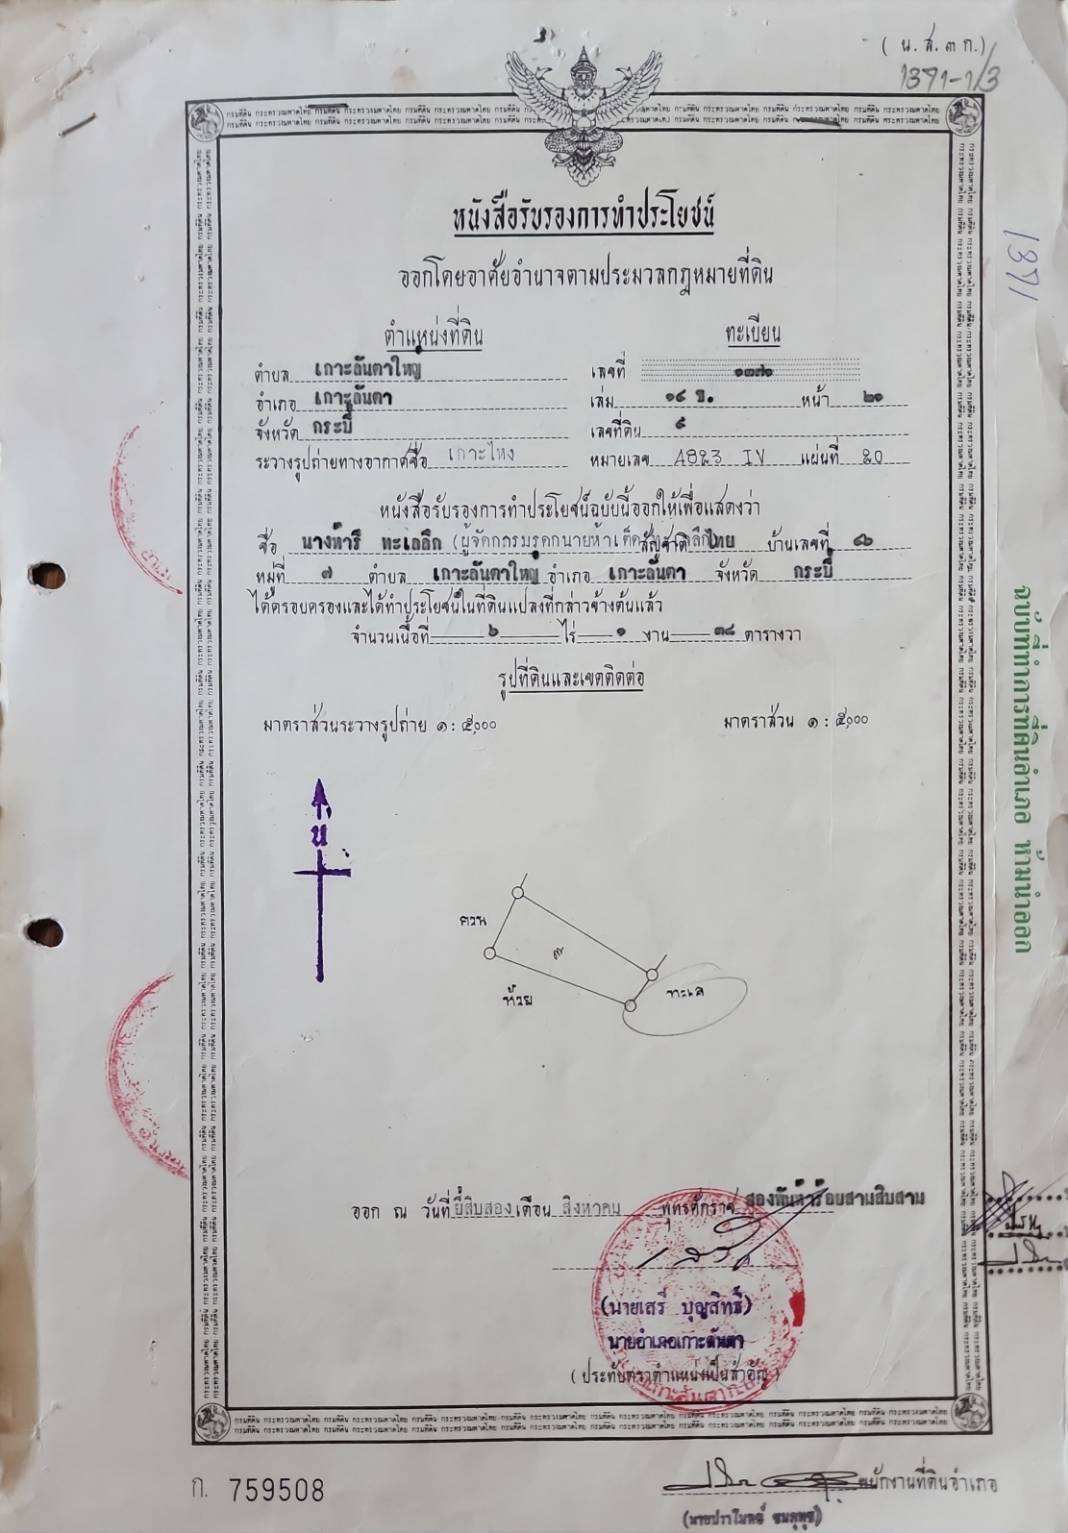 ( น.ส.๓ ก.)
1371-1/3
หนังสือรับรองการทำประโยชน์
ออกโดยอาศัยอำนาจตามประมวลกฎหมายที่ดิน
ตำแหน่งที่ดิน
ทะเบียน
ตำบล เกาะลันตาใหญ่
เลขที่ ๑๓๗๑
อำเภอ เกาะลันตา
เล่ม ๑๔ ข. หน้า ๒๑
จังหวัด กระบี่
เลขที่ดิน ๙
ระวางรูปถ่ายทางอากาศชื่อ เกาะไหง
หมายเลข 4823 IV แผ่นที่ 20
หนังสือรับรองการทำประโยชน์ฉบับนี้ออกให้เพื่อแสดงว่า
ชื่อ นางห้ารี ทะเลลึก (ผู้จัดการมรดกนายห้าเต็ด สัญชาติ ไทย บ้านเลขที่ ๘๖
หมู่ที่ ๗ ตำบล เกาะลันตาใหญ่ อำเภอ เกาะลันตา จังหวัด กระบี่
ได้ครอบครองและได้ทำประโยชน์ในที่ดินแปลงที่กล่าวข้างต้นแล้ว
จำนวนเนื้อที่ ๖ ไร่ ๑ งาน ๓๘ ตารางวา
รูปที่ดินและเขตติดต่อ
มาตราส่วนระวางรูปถ่าย ๑ : ๕,๐๐๐
มาตราส่วน ๑ : ๕,๐๐๐
น
ควน
ห้วย
ทะเล
ออก ณ วันที่ ยี่สิบสอง เดือน สิงหาคม พุทธศักราช สองพันห้าร้อยสามสิบสาม
(นายเสรี บุญสิทธิ์)
นายอำเภอเกาะลันตา
(ประทับตราตำแหน่งเป็นสำคัญ)
ก. 759508
พนักงานที่ดินอำเภอ
1371
ฉบับที่ทำการที่ดินอำเภอ ห้ามนำออก